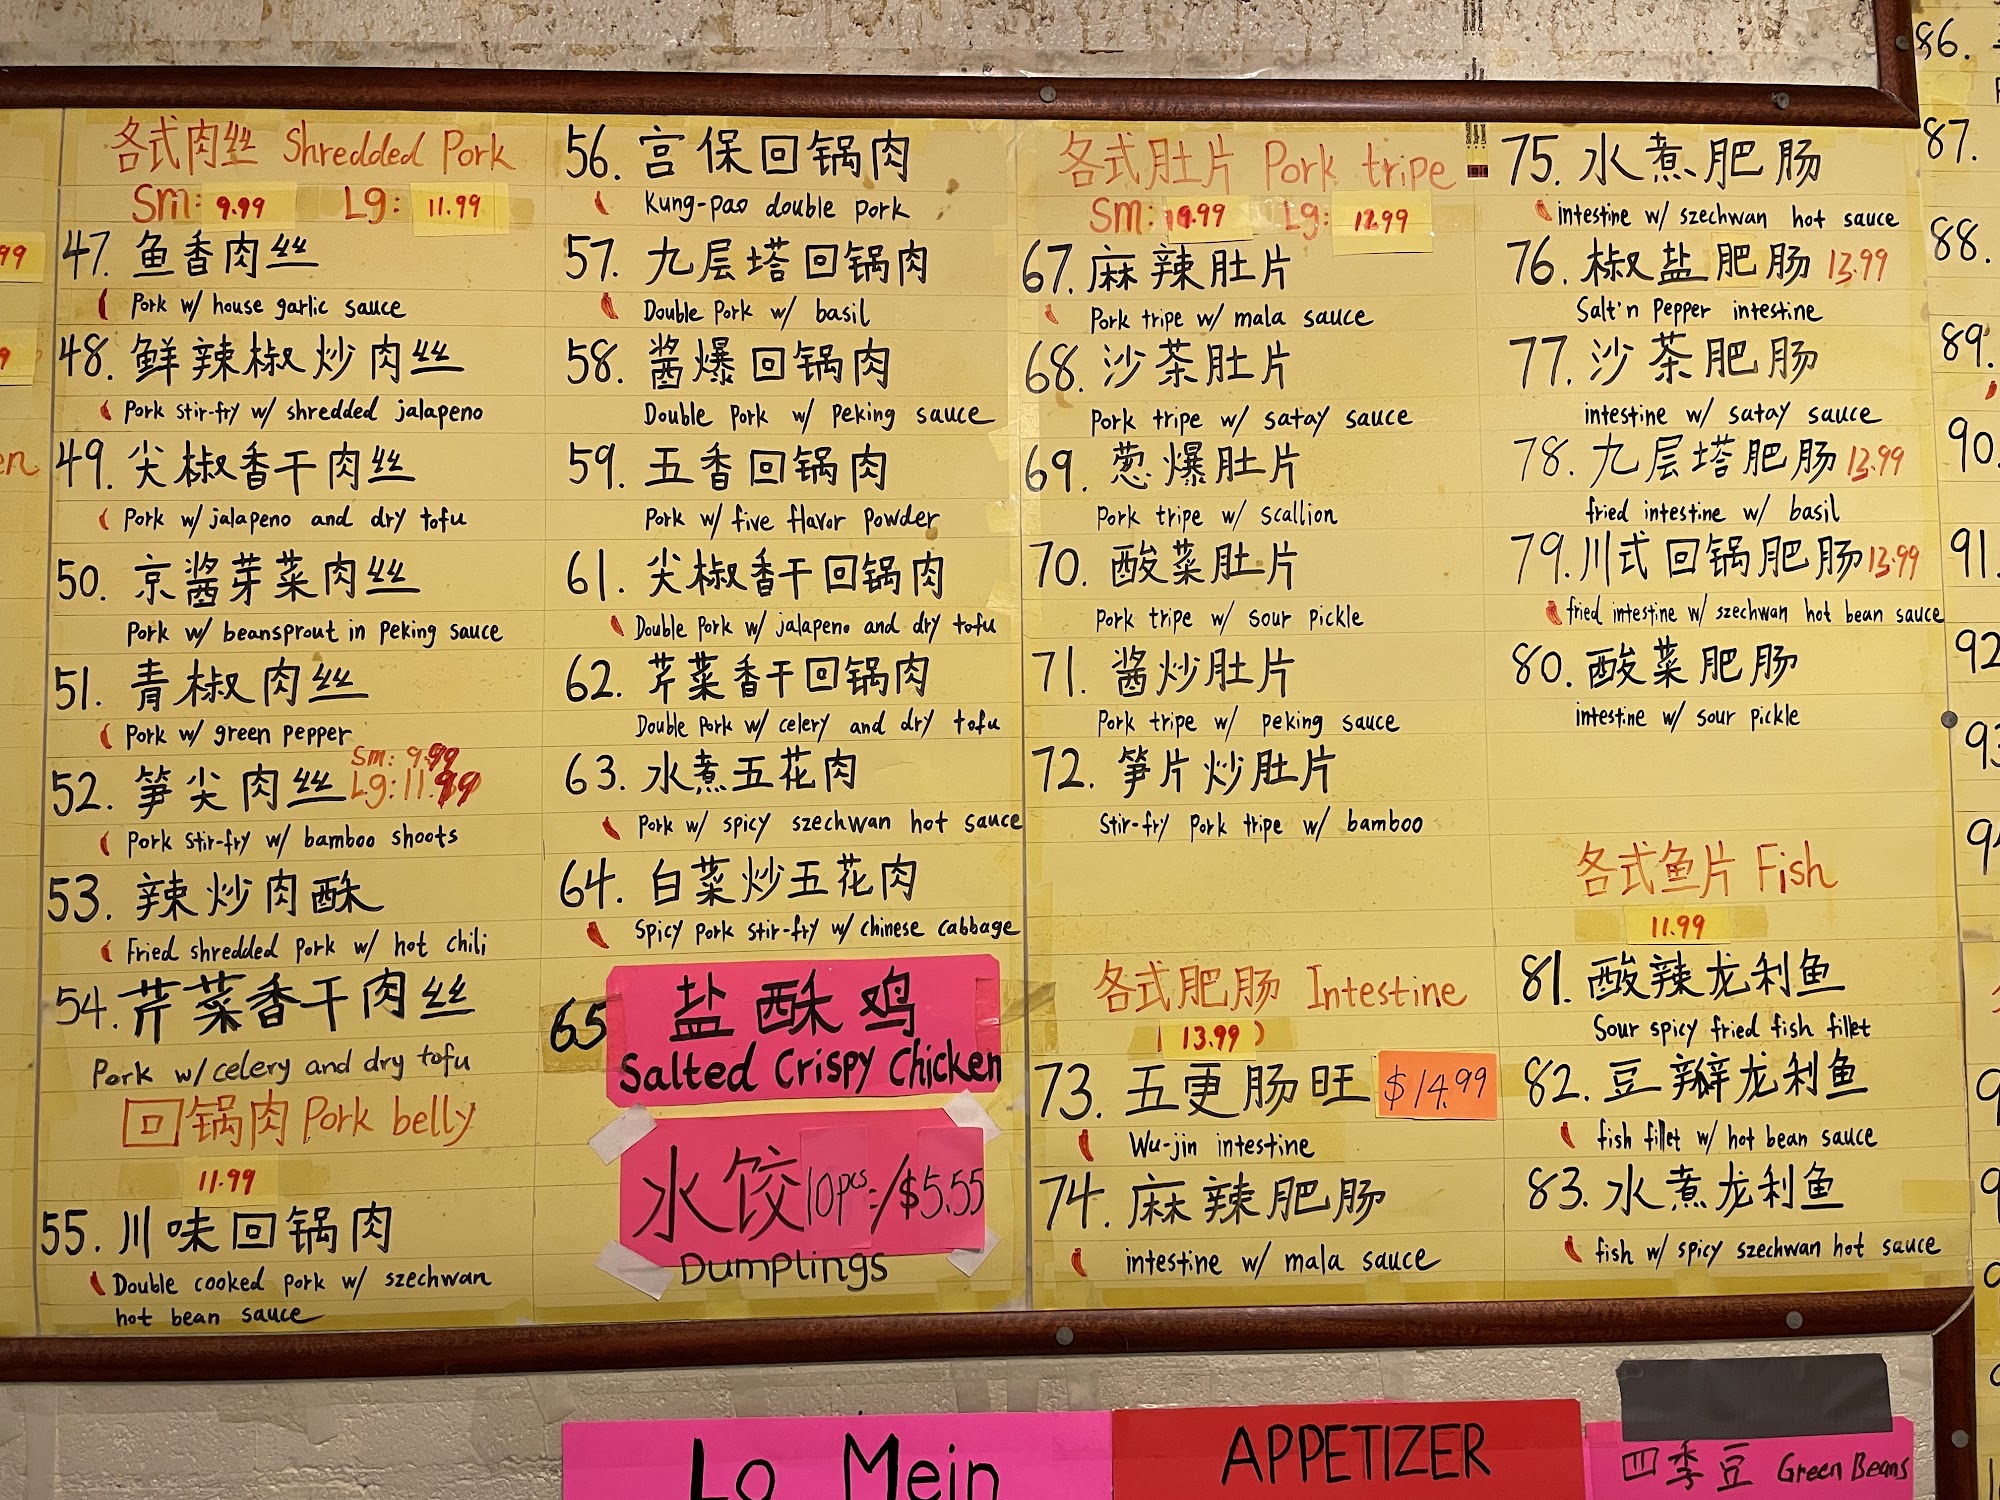 99
9
en
各式肉丝 Shredded Pork
Sm: 9.99 Lg: 11.99
47. 鱼香肉丝
Pork w/ house garlic sauce
48. 鲜辣椒炒肉丝
Pork stir-fry w/ shredded jalapeno
49. 尖椒香干肉丝
Pork w/ jalapeno and dry tofu
50. 京酱芽菜肉丝
Pork w/ beansprout in peking sauce
51. 青椒肉丝
Pork w/ green pepper
52. 笋尖肉丝 Sm: 9.99
Lg: 11.99
Pork stir-fry w/ bamboo shoots
53. 辣炒肉酥
Fried shredded pork w/ hot chili
54. 芹菜香干肉丝
Pork w/ celery and dry tofu
回锅肉 Pork belly
11.99
55. 川味回锅肉
Double cooked pork w/ szechwan
hot bean sauce
56. 宫保回锅肉
Kung-pao double pork
57. 九层塔回锅肉
Double Pork w/ basil
58. 酱爆回锅肉
Double Pork w/ peking sauce
59. 五香回锅肉
Pork w/ five flavor powder
61. 尖椒香干回锅肉
Double Pork w/ jalapeno and dry tofu
62. 芹菜香干回锅肉
Double Pork w/ celery and dry tofu
63. 水煮五花肉
Pork w/ spicy szechwan hot sauce
64. 白菜炒五花肉
Spicy pork stir-fry w/ chinese cabbage
65 盐酥鸡
Salted Crispy Chicken
水饺 10pcs/$5.55
Dumplings
各式肚片 Pork tripe
Sm: Lg:
67. 麻辣肚片
Pork tripe w/ mala sauce
68. 沙茶肚片
Pork tripe w/ satay sauce
69. 葱爆肚片
Pork tripe w/ scallion
70. 酸菜肚片
Pork tripe w/ sour pickle
71. 酱炒肚片
Pork tripe w/ peking sauce
72. 笋片炒肚片
Stir-fry pork tripe w/ bamboo
各式肥肠 Intestine
(13.99)
73. 五更肠旺 $14.99
Wu-jin intestine
74. 麻辣肥肠
intestine w/ mala sauce
75. 水煮肥肠
intestine w/ szechwan hot sauce
76. 椒盐肥肠 13.99
Salt'n Pepper intestine
77. 沙茶肥肠
intestine w/ satay sauce
78. 九层塔肥肠 13.99
fried intestine w/ basil
79. 川式回锅肥肠 13.99
fried intestine w/ szechwan hot bean sauce
80. 酸菜肥肠
intestine w/ sour pickle
各式鱼片 Fish
11.99
81. 酸辣龙利鱼
Sour spicy fried fish fillet
82. 豆瓣龙利鱼
fish fillet w/ hot bean sauce
83. 水煮龙利鱼
fish w/ spicy szechwan hot sauce
86.
87.
88.
89.
90.
91.
92
93
Lo Mein
APPETIZER
四季豆 Green Beans